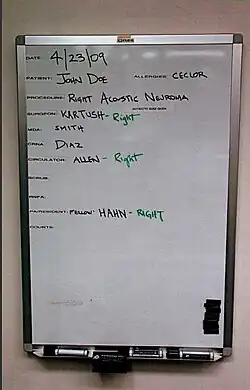 DATE: 4/23/09
PATIENT: JOHN DOE ALLERGIES: CECLOR
PROCEDURE: RIGHT ACOUSTIC NEUROMA
SURGEON: KARTUSH - Right
MDA: SMITH
CRNA: DIAZ
CIRCULATOR: ALLEN - Right
SCRUB:
RNFA:
PA/RESIDENT: FELLOW: HAHN - RIGHT
COUNTS: